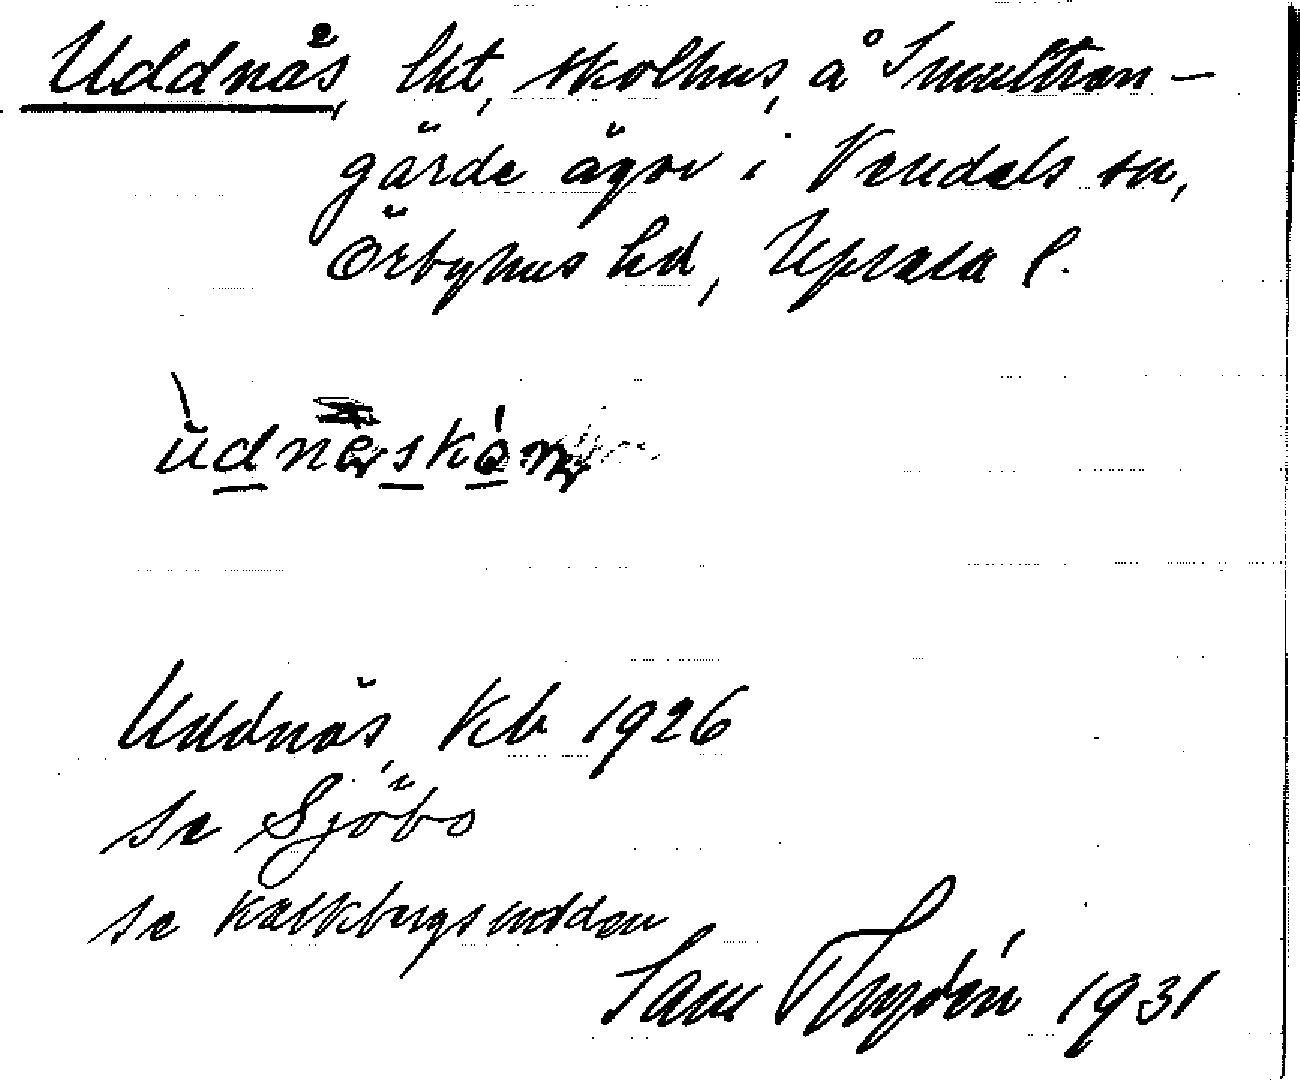 Uddnäs, lht, skolhus, å Smultron-
gärde ägor i Vendels sn,
Örbyhus hd, Upsala l.
Uddnäs, Kb 1926
se Sjöbo
se Kalkbergsudden
Sam Thydén 1931